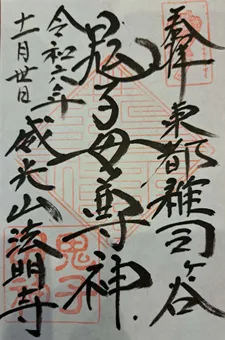 奉拝
東都雑司ヶ谷
鬼子母尊神
令和六年
十一月廿日
威光山法明寺